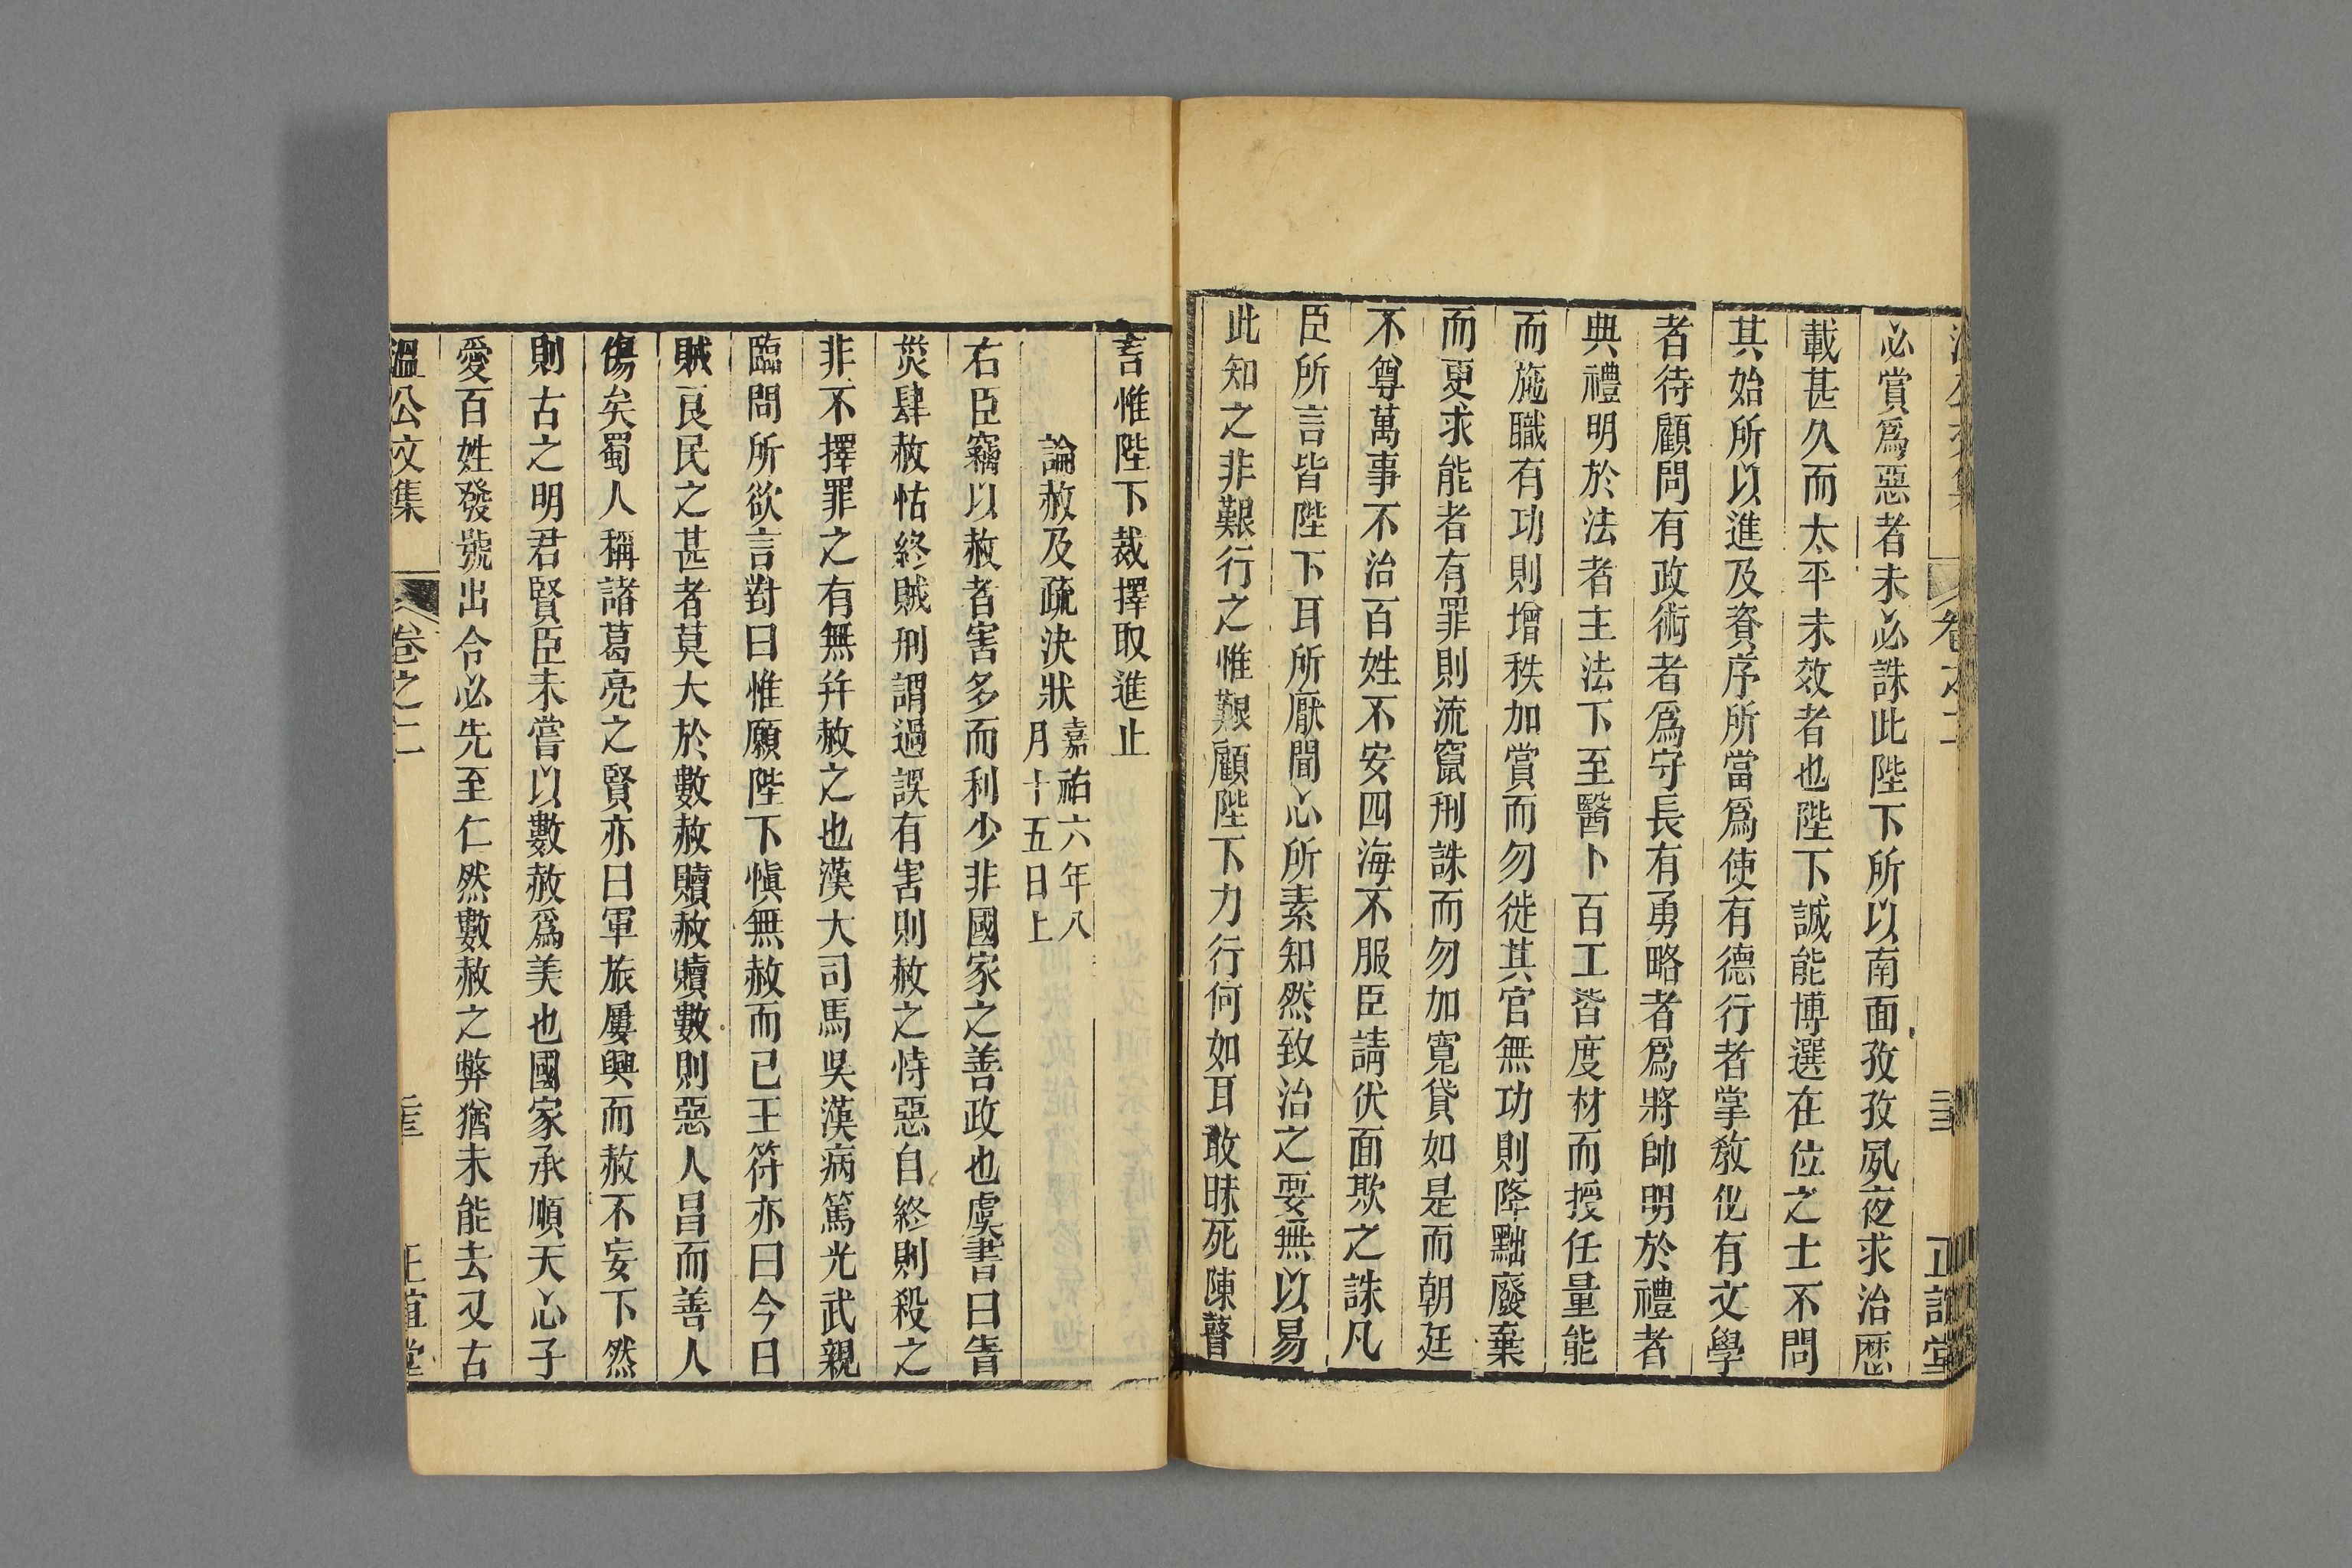 必賞爲惡者未必誅此陛下所以南面孜孜夙夜求治歷
載甚久而太平未效者也陛下誠能博選在位之士不問
其始所以進及資序所當爲使有德行者掌教化有文學
者待顧問有政術者爲守長有勇略者爲將帥明於禮者
典禮明於法者主法下至醫卜百工皆度材而授任量能
而施職有功則增秩加賞而勿徙其官無功則降黜廢棄
而更求能者有罪則流竄刑誅而勿加寬貸如是而朝廷
不尊萬事不治百姓不安四海不服臣請伏面欺之誅凡
臣所言皆陛下耳所厭聞心所素知然致治之要無以易
此知之非艱行之惟艱顧陛下力行何如耳敢昧死陳瞽
言惟陛下裁擇取進止
論赦及疏決狀
嘉祐六年八
月十五日上
右臣竊以赦者害多而利少非國家之善政也虞書曰眚
災肆赦怙終賊刑謂過誤有害則赦之恃惡自終則殺之
非不擇罪之有無并赦之也漢大司馬吳漢病篤光武親
臨問所欲言對曰惟願陛下愼無赦而已王符亦曰今日
賊良民之甚者莫大於數赦贖赦贖數則惡人昌而善人
傷矣蜀人稱諸葛亮之賢亦曰軍旅屢興而赦不妄下然
則古之明君賢臣未嘗以數赦爲美也國家承順天心子
愛百姓發號出令必先至仁然數赦之弊猶未能去又古
溫公文集 卷之二 正誼堂